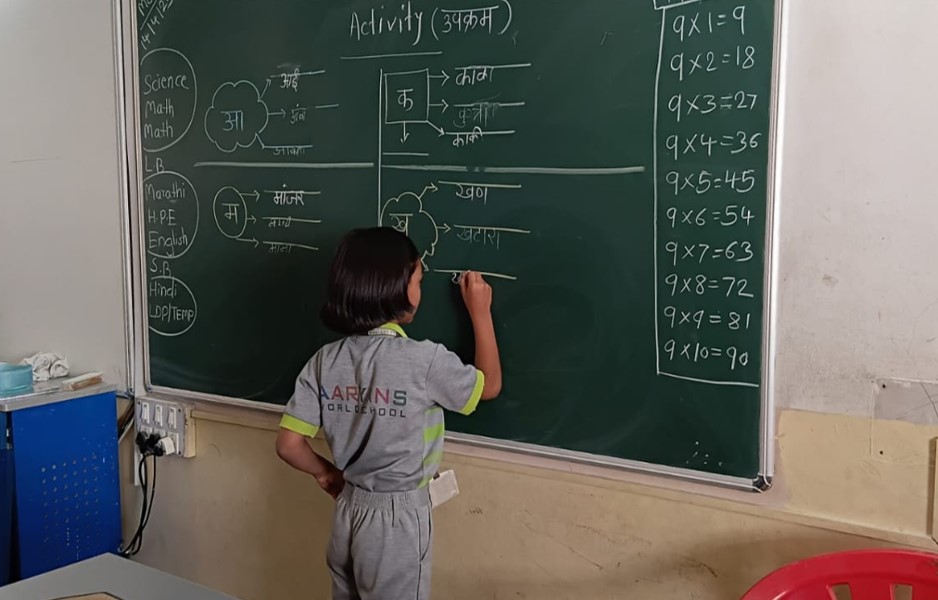 14/4/25
Activity (उपक्रम)
Science
Math
Math
L.B
Marathi
H.P.E
English
S.B
Hindi
LDP/TEMP
आ
आई
क
काका
काकी
म
मांजर
ख
खण
खटारा
9×1=9
9×2=18
9×3=27
9×4=36
9×5=45
9×6=54
9×7=63
9×8=72
9×9=81
9×10=90
AARYANS
WORLD SCHOOL